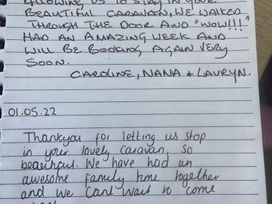 ALLOWING US TO STAY IN YOUR
BEAUTIFUL CARAVAN, WE WALKED
THROUGH THE DOOR AND "WOW!!!"
HAD AN AMAZING WEEK AND
WILL BE BOOKING AGAIN VERY
SOON.
CAROLINE, NANA & LAURYN.
01.05.22
Thankyou for letting us stop
in your lovely caravan, so
beautiful. We have had an
awesome family time together
and we cant wait to come